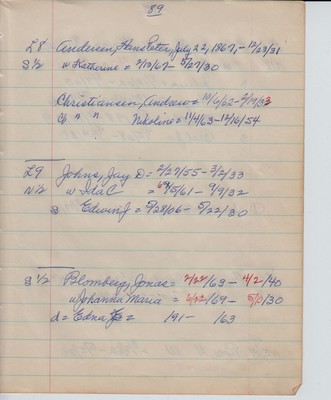 89
L8 Andersen, Hans Peter, July 22, 1867, - 12/23/31
S 1/2 w Katherine = 2/13/67 - 5/27/30
Christiansen, Andrew = 10/6/62 - 2/19/33
" " Nikoline = 11/4/63 - 12/16/54
L9 Johns, Jay D = 2/27/55 - 3/2/33
N 1/2 w Ida C = /5/61 - 9/9/32
s Edwin J = 5/28/06 - 5/22/30
S 1/2 Blomberg, Jonas = 2/22/63 - 4/2/40
w Johanna Maria = 6/22/69 - /30
d = Edna = 191 - 163